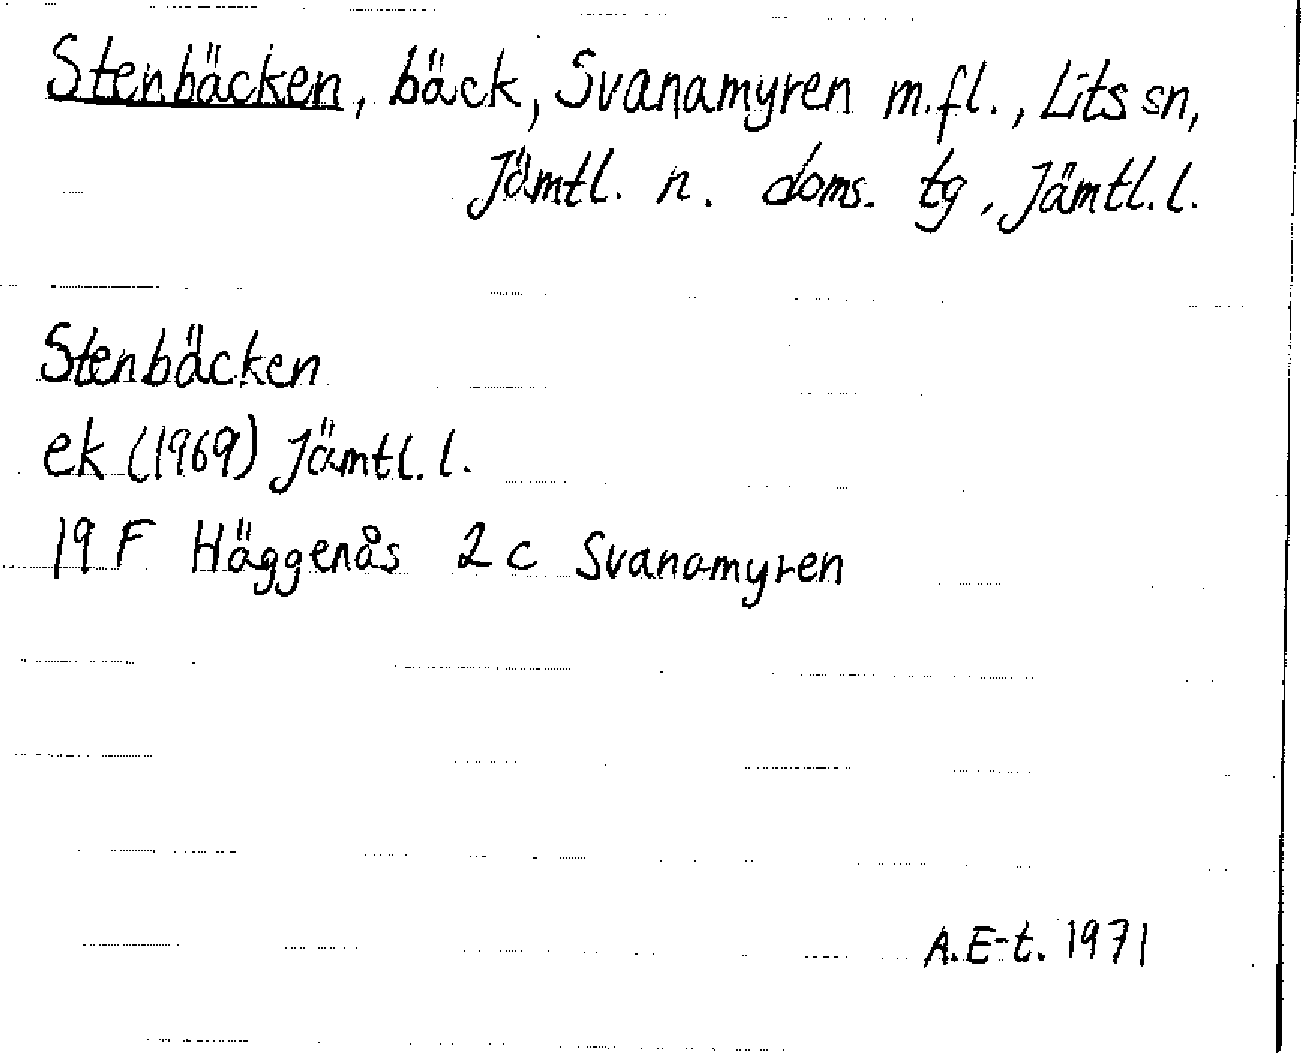 Stenbäcken, bäck, Svanamyren m.fl., Lits sn,
Jämtl. n. doms. tg, Jämtl. l.
Stenbäcken
ek (1969) Jämtl. l.
19 F Häggenås 2 c Svanamyren
A. E-t. 1971